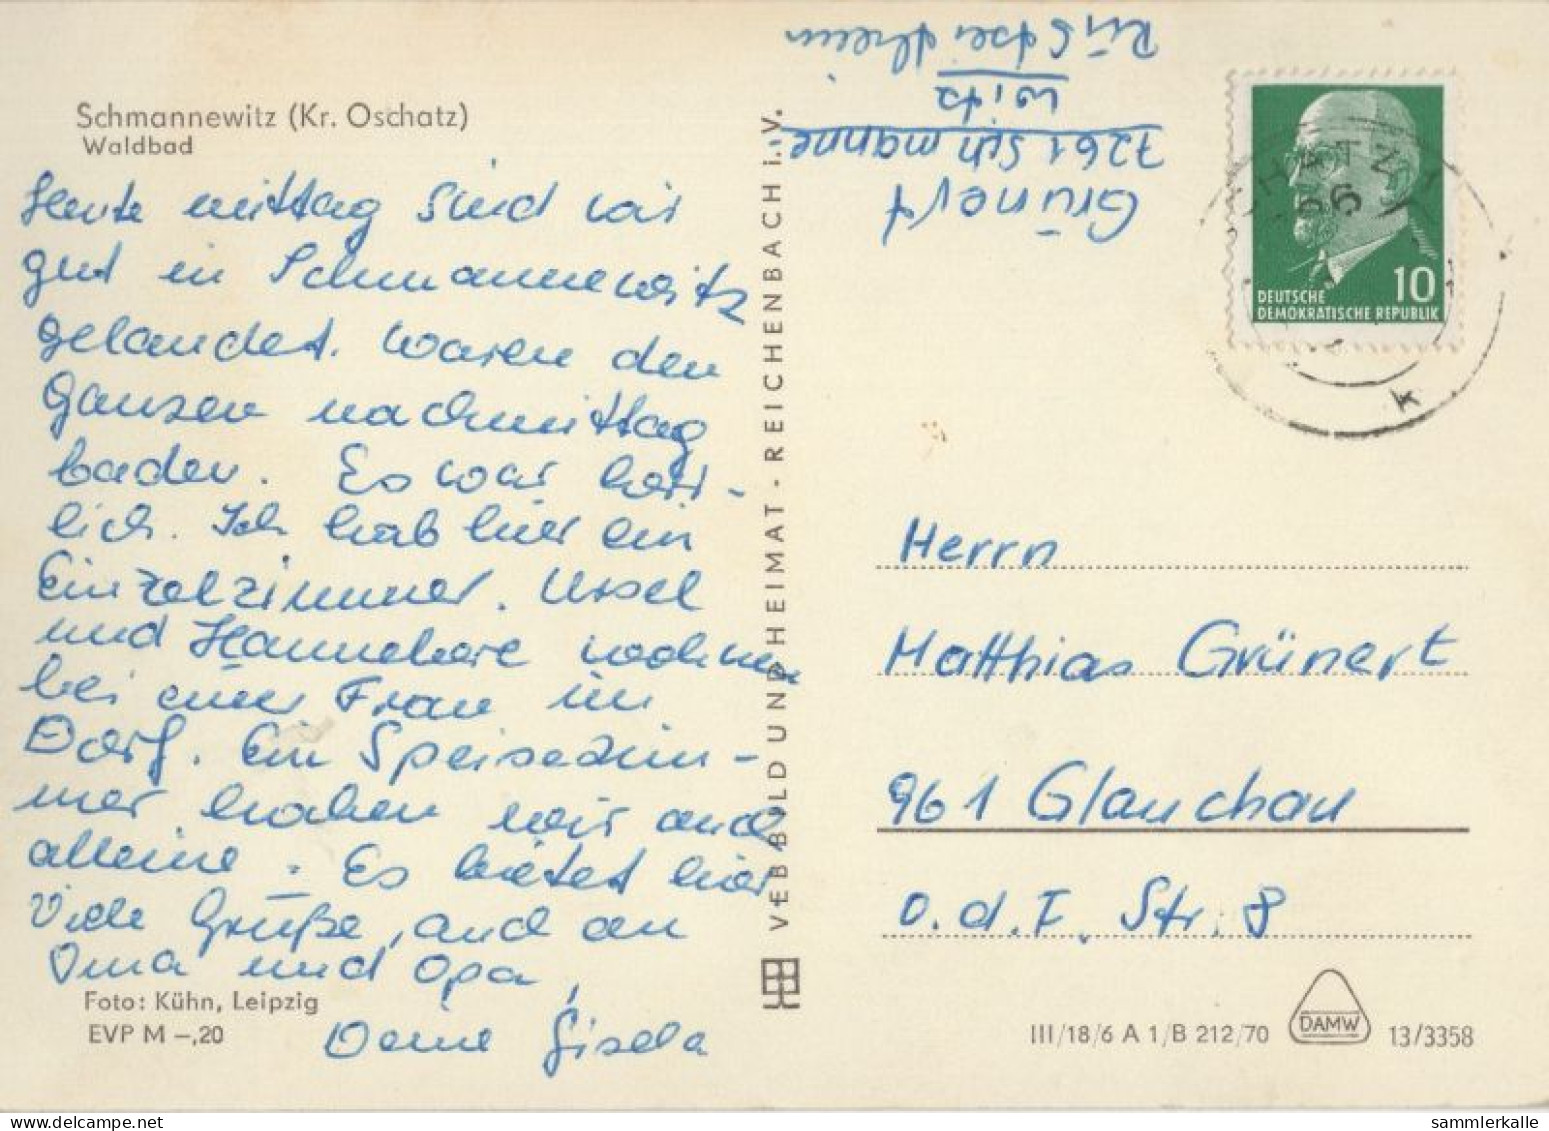 Schmannewitz (Kr. Oschatz)
Waldbad
Heute mittag sind wir
gut in Schmannewitz
gelandet. Waren den
ganzen nachmittag
baden. Es war herr-
lich. Ich hab hier ein
Einzelzimmer. Ursel
und Hannelore wohnen
bei einer Frau im
Dorf. Ein Speisezim-
mer haben wir auch
alleine. Es bietet hier
Viele Grüße, auch an
Oma und Opa,
Deine Gisela
Foto: Kühn, Leipzig
EVP M –,20
VEB BILD UND HEIMAT · REICHENBACH i. V.
Grünert
7261 Schmanne-
witz
DEUTSCHE
DEMOKRATISCHE REPUBLIK
10
HATZ 1
k
Herrn
Matthias Grünert
961 Glauchau
O.d.F. Str. 8
III/18/6 A 1/B 212/70
DAMW
13/3358
sammlerkalle.com